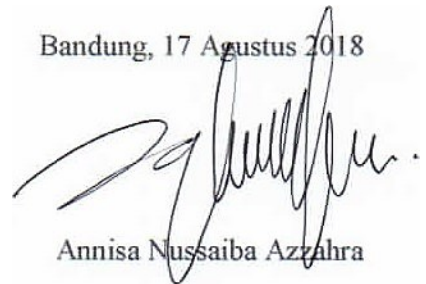 Bandung, 17 Agustus 2018
Annisa Nussaiba Azzahra